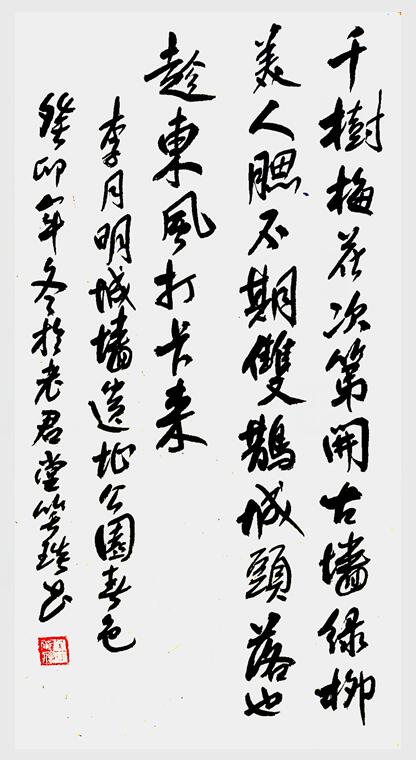 千樹梅花次第開古墻綠柳
美人腮不期雙鵲城頭落也
趁東風打卡来
李月明城墻遗址公園春色
癸卯年冬於老君堂